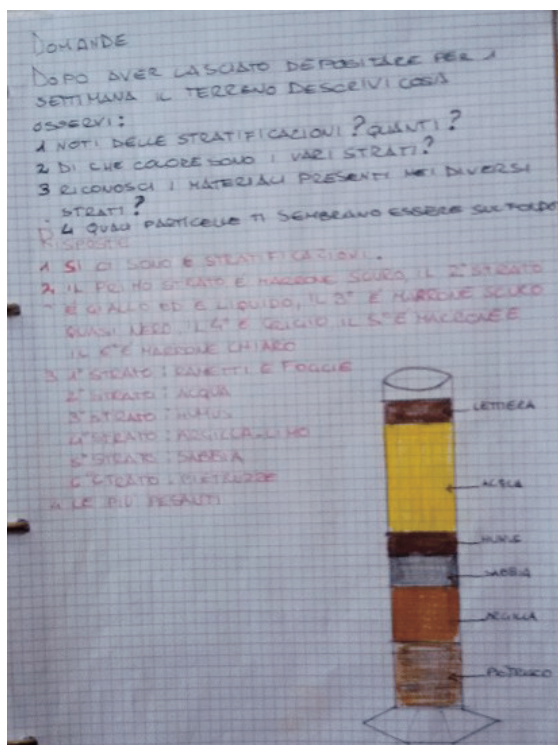 DOMANDE
DOPO AVER LASCIATO DEPOSITARE PER 1
SETTIMANA IL TERRENO DESCRIVI COSA
OSSERVI:
1 NOTI DELLE STRATIFICAZIONI? QUANTI?
2 DI CHE COLORE SONO I VARI STRATI?
3 RICONOSCI I MATERIALI PRESENTI NEI DIVERSI
STRATI?
4 QUALI PARTICELLE TI SEMBRANO ESSERE SUL FONDO
RISPOSTE
1 SI CI SONO 6 STRATIFICAZIONI.
2 IL PRIMO STRATO È MARRONE SCURO, IL 2° STRATO
È GIALLO ED È LIQUIDO, IL 3° È MARRONE SCURO
QUASI NERO IL 4° È GRIGIO IL 5° È MARRONE E
IL 6° È MARRONE CHIARO
3 1° STRATO: RAMETTI E FOGLIE
2° STRATO: ACQUA
3° STRATO: HUMUS
4° STRATO: ARGILLA-LIMO
5° STRATO: SABBIA
6° STRATO: PIETRUZZE
4 LE PIÙ PESANTI
LETTIERA
ACQUA
HUMUS
SABBIA
ARGILLA